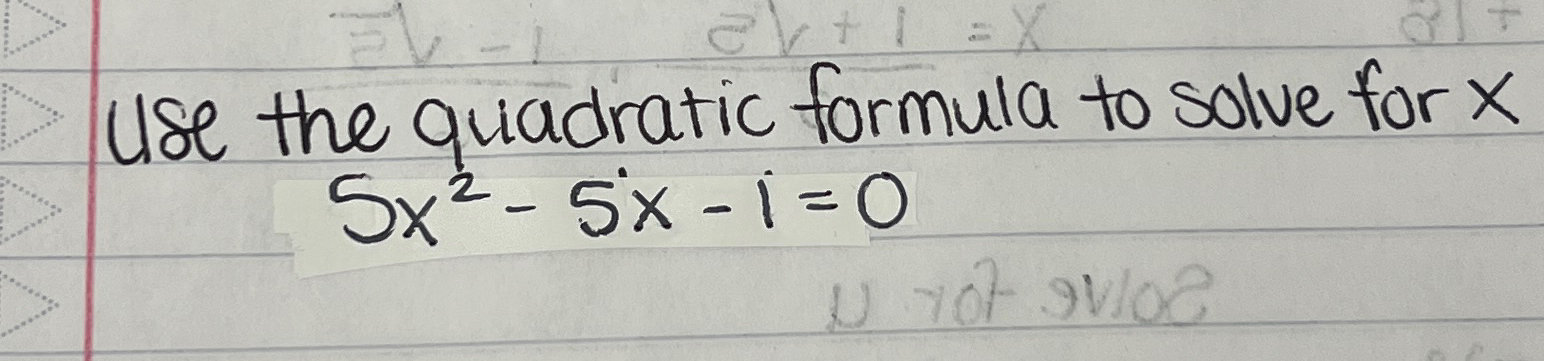 Use the quadratic formula to solve for x
5x² - 5x - 1 = 0